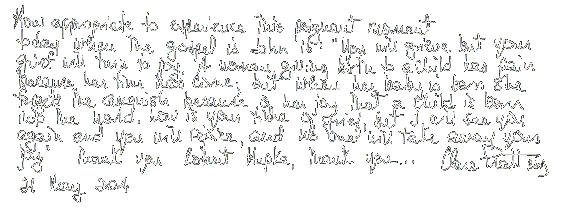 How appropriate to experience this poignant moment
today when the gospel is John 16: "You will grieve but your
grief will turn to joy. A woman giving birth to a child has pain
because her time has come; but when her baby is born she
forgets the anguish because of her joy that a child is born
into the world. Now is your time of grief, but I will see you
again and you will rejoice, and no one will take away your
joy." Thank you Count thank you...
21 May 2004